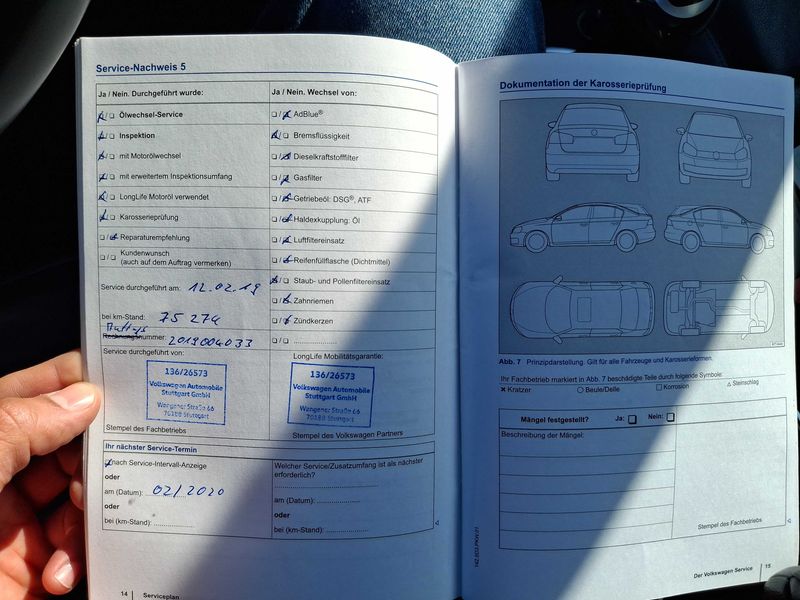 Service-Nachweis 5
Ja / Nein. Durchgeführt wurde:
Ölwechsel-Service
Inspektion
mit Motorölwechsel
mit erweitertem Inspektionsumfang
LongLife Motoröl verwendet
Karosserieprüfung
Reparaturempfehlung
Kundenwunsch
(auch auf dem Auftrag vermerken)
Ja / Nein. Wechsel von:
AdBlue®
Bremsflüssigkeit
Dieselkraftstofffilter
Gasfilter
Getriebeöl: DSG®, ATF
Haldexkupplung: Öl
Luftfiltereinsatz
Reifenfüllflasche (Dichtmittel)
Staub- und Pollenfiltereinsatz
Zahnriemen
Zündkerzen
Service durchgeführt am: 12.02.19
bei km-Stand: 75 274
Auftrags
Rechnungsnummer: 2019004033
Service durchgeführt von:
136/26573
Volkswagen Automobile
Stuttgart GmbH
Wangener Straße 66
70188 Stuttgart
Stempel des Fachbetriebs
LongLife Mobilitätsgarantie:
136/26573
Volkswagen Automobile
Stuttgart GmbH
Wangener Straße 66
70188 Stuttgart
Stempel des Volkswagen Partners
Ihr nächster Service-Termin
nach Service-Intervall-Anzeige
oder
am (Datum): 02/2020
oder
bei (km-Stand):
Welcher Service/Zusatzumfang ist als nächster
erforderlich?
am (Datum):
oder
bei (km-Stand):
14 Serviceplan
Dokumentation der Karosserieprüfung
Abb. 7 Prinzipdarstellung. Gilt für alle Fahrzeuge und Karosserieformen.
Ihr Fachbetrieb markiert in Abb. 7 beschädigte Teile durch folgende Symbole:
× Kratzer ○ Beule/Delle □ Korrosion △ Steinschlag
Mängel festgestellt? Ja: Nein:
Beschreibung der Mängel:
Stempel des Fachbetriebs
Der Volkswagen Service 15